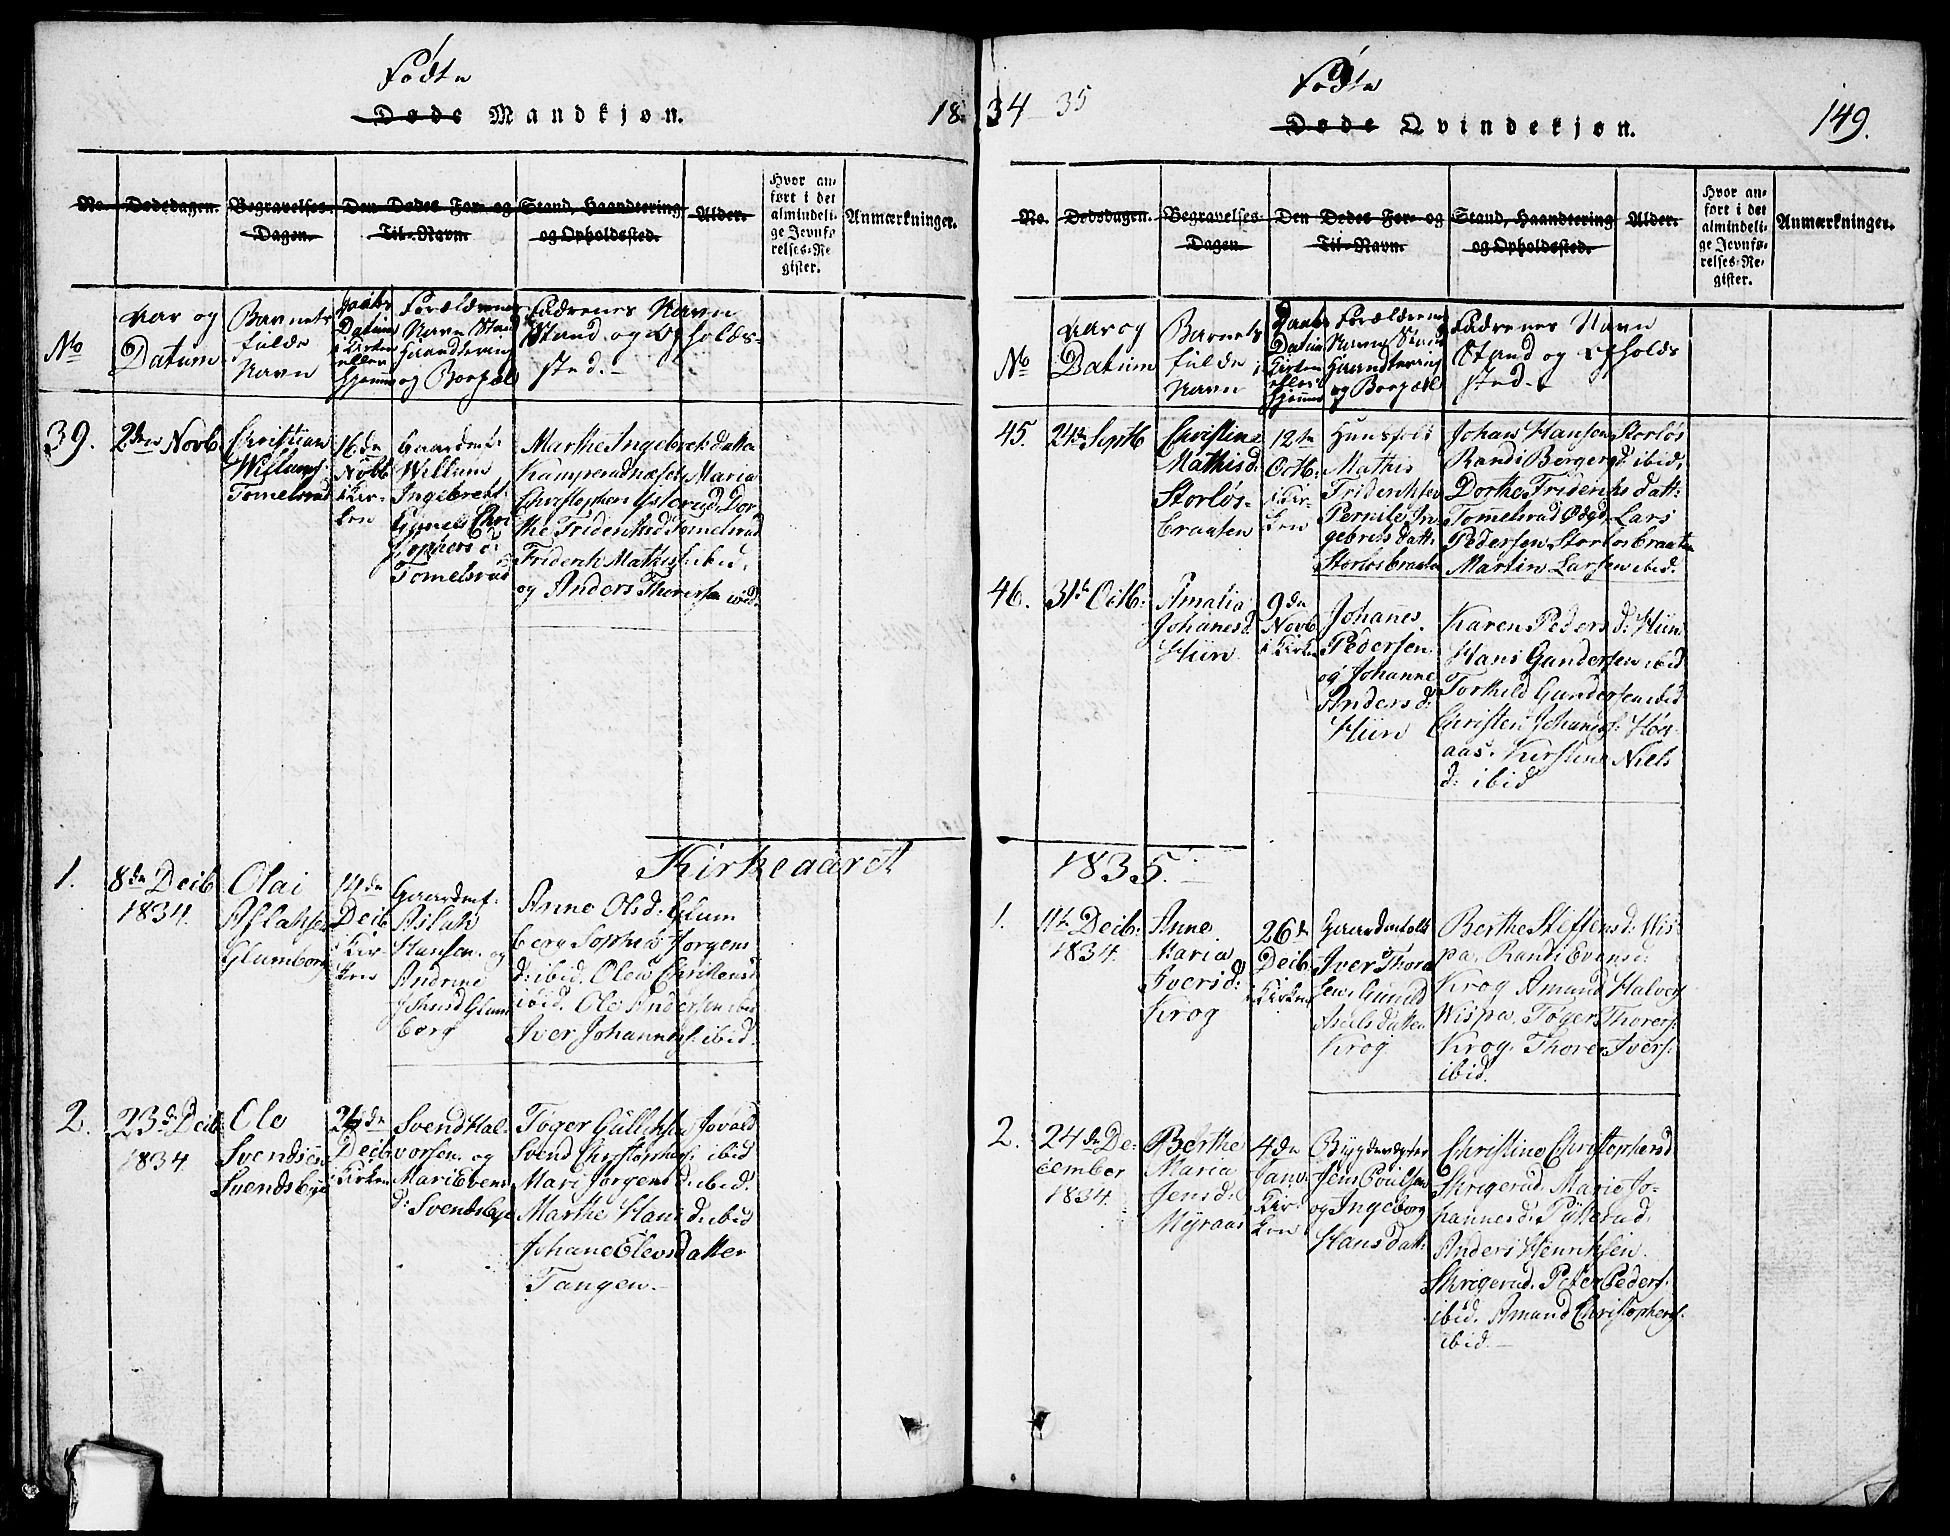 Födte
Døde Mandkjøn.
18
No.
Dødedagen.
Begravelses-
Dagen.
Den Dødes For- og
Til-Navn.
Stand, Haandtering
og Opholdssted.
Alder.
Hvor an-
ført i det
almindeli-
ge Jevnfø-
relses-Re-
gister.
Anmærkninger.
No
Aar og
Datum
Barnets
fulde
Navn
Daabs
Datum
i Kirken
eller
hjemme
Forældrenes
Navn Stand
Haandtering
og Bopæl
Fadrenes Navn
Stand og Opholds-
sted.
39.
2den Novb
Christian
Willums:
Tomelsrud
16de
Novb
i Kir-
ken
Gaardmd:
Willum
Ingebrets:
Christophersd:
Tomelsrud
Marthe Ingebretsdatter
Kamperudnæset, Maria
Christophers Ysterud, Dor-
the Frideriksd Tomelsrud
Friderik Mathis: ibid.
og Anders Thoresen ibid.
Kirkeaaret
1.
8de Decb
1834.
Olai
Aslaksen
Glumborg
14de
Decb
i Kir-
ken
Gaardmd:
Aslak
Hansen og
Andrine
Glum
borg
Anne Olsd: Glum
berg Sophie Jørgens
d: ibid. Olea Christensd
ibid. Ole Andersen ibid
Iver Johannes: ibid.
2.
23d: Decb
1834
Ole
Svendsen
Svendsbye
26de
Decb
i Kirken
Svend Hal-
vorsen og
Mari Evens
d: Svendsbye
Toger Gulliksen Jovald
Svend Christophers: ibid
Mari Jørgensd: ibid.
Marthe Hansd: ibid
Johane Elevsdatter
Tangen.
34 35
Födte
Døde Qvindekjøn.
149.
No.
Dødsdagen.
Begravelses-
Dagen.
Den Dødes For- og
Til-Navn.
Stand, Haandtering
og Opholdssted.
Alder.
Hvor an-
ført i det
almindeli-
ge Jevnfø-
relses-Re-
gister.
Anmærkninger.
No
Aar og
Datum
Barnets
fulde
Navn
Daabs
Datum i
Kirken
eller
hjemme
Forældrenes
Navn Stand
Haandtering
og Bopæl
Fadrenes Navn
Stand og Opholds
sted.
45.
24de Septb
Christine
Mathisd:
Storløs-
braaten
12te
Octb:
i Kir-
ken
Huusfolk
Mathis
Frideriksen
Pernile In-
gebretsdatt:
Storløsbraaten
Johan Hansen Storløs
Randi Bergersd: ibid.
Dorthe Frideriksdatt:
Tomelsrud Ødgd. Lars
Pedersen Storløsbraaten
Martin Larsen ibid:
46.
31te Octb:
Amalia
Johanesd:
Hiin
9de
Novb
i Kirken
Johannes
Pedersen
og Johanne
Andersd:
Hiin
Karen Pedersd: Hiin
Hans Gundersen ibid
Torkild Gundersen ibid
Christen Johanes: Høi-
aas. Kirstine Niels
d: ibid
1835.
1.
11te Decb:
1834.
Anne
Maria
Iversd:
Krog
26de
Decb
i Kirken
Gaardmfolk
Iver Thore
sen, Gunild
Axelsdatter
Krog
Berthe Steffensd: Wis-
pa. Randi Evensd:
Krog Amund Halvors
Wispa, Toger Thorers:
Krog. Thore Ivers:
ibid.
2.
24de De-
cember
1834.
Berthe
Maria
Jensd:
Myraas
4de
Janv:
i Kir-
ken
Bygdevægter
Jens Poulsen
og Ingeborg
Hansdatt:
Christine Christophersd
Skrigerud. Marie Jo-
hannesd: Tytterud.
Anders Henriksen
Skrigerud. Peter Peders:
ibid. Amund Christophers:
ibid.